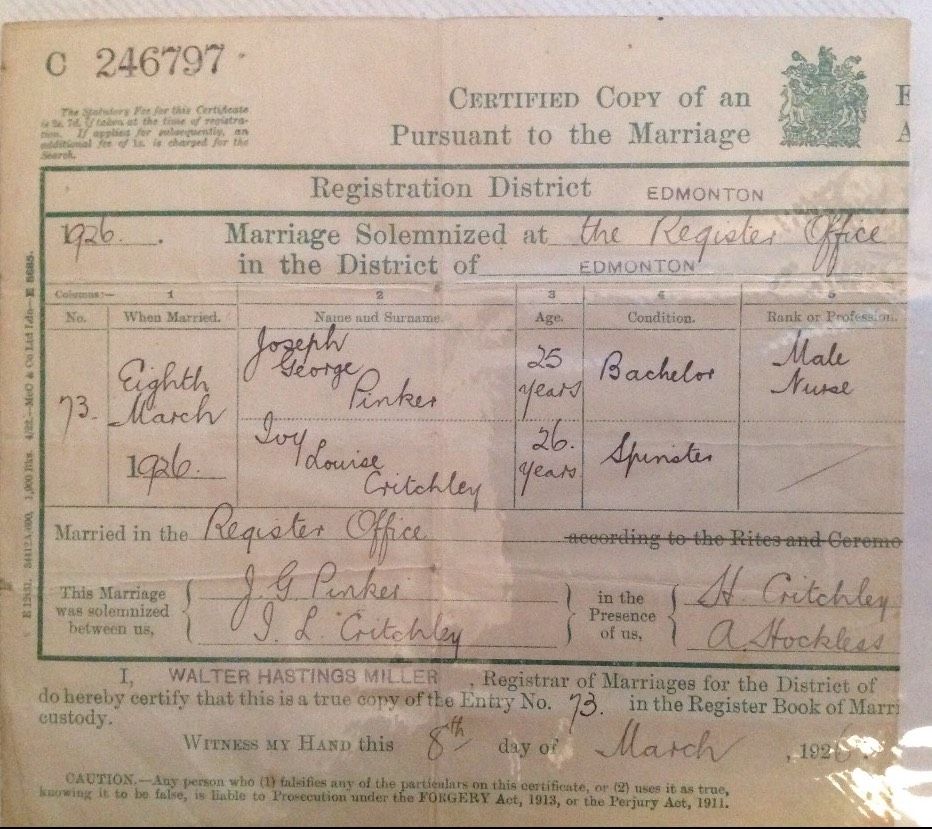 C 246797
The Statutory Fee for this Certificate
is 2s. 7d. if taken at the time of registra-
tion. If applied for subsequently, an
additional fee of 1s. is charged for the
Search.
CERTIFIED COPY of an E
Pursuant to the Marriage A
Registration District EDMONTON
1926. Marriage Solemnized at the Register Office
in the District of EDMONTON
Columns:— 1 2 3 4 5
No. When Married. Name and Surname. Age. Condition. Rank or Profession.
73. Eighth March 1926. Joseph George Pinker 25 years Bachelor Male Nurse
Ivy Louise Critchley 26. years Spinster
Married in the Register Office according to the Rites and Ceremo
This Marriage was solemnized between us, J. G. Pinker in the Presence of us, H. Critchley
I. L. Critchley A. Hockless
I, WALTER HASTINGS MILLER, Registrar of Marriages for the District of
do hereby certify that this is a true copy of the Entry No. 73. in the Register Book of Marri
custody.
WITNESS MY HAND this 8th day of March, 1926.
CAUTION.—Any person who (1) falsifies any of the particulars on this certificate, or (2) uses it as true,
knowing it to be false, is liable to Prosecution under the FORGERY Act, 1913, or the Perjury Act, 1911.